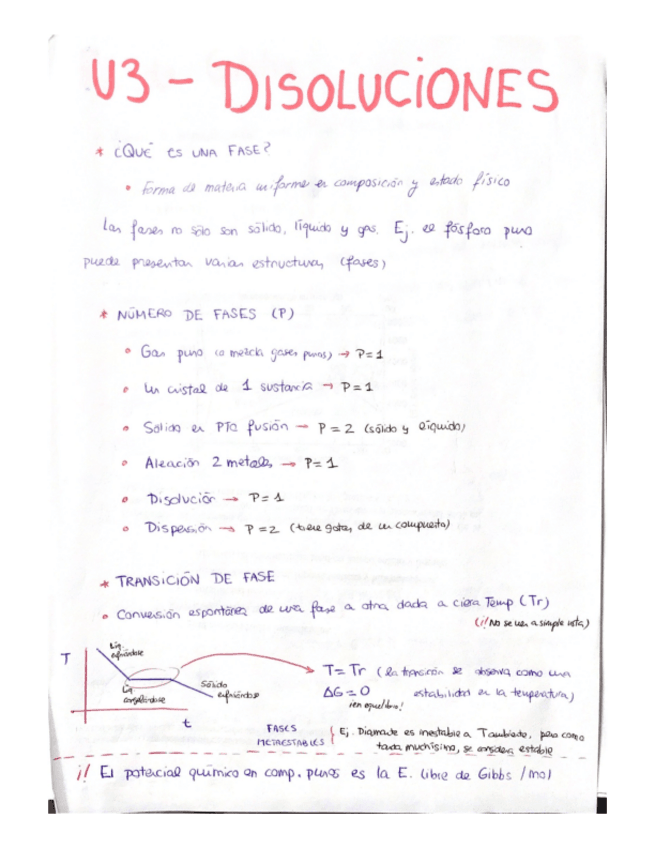 U3 - DISOLUCIONES
* ¿QUÉ ES UNA FASE?
• Forma de materia uniforme en composición y estado físico
Las fases no sólo son sólido, líquido y gas. Ej. el fósforo puro
puede presentar varias estructuras (fases)
* NÚMERO DE FASES (P)
• Gas puro (o mezcla gases puros) → P=1
• Un cristal de 1 sustancia → P=1
• Sólido en PTO fusión → P=2 (sólido y líquido)
• Aleación 2 metales → P=1
• Disolución → P=1
• Dispersión → P=2 (tiene gotas de un compuesto)
* TRANSICIÓN DE FASE
• Conversión espontánea de una fase a otra dada a cierta Temp (Tr)
(¡! No se ven a simple vista)
Liq. enfriándose
T
Liq congelándose
Sólido enfriándose
t
T=Tr (la transición se observa como una
ΔG=0 estabilidad en la temperatura)
¡en equilibrio!
FASES METAESTABLES
Ej. Diamante es inestable a Tambiente, pero como
tarda muchísimo, se considera estable
¡! El potencial químico en comp. puros es la E. libre de Gibbs /mol